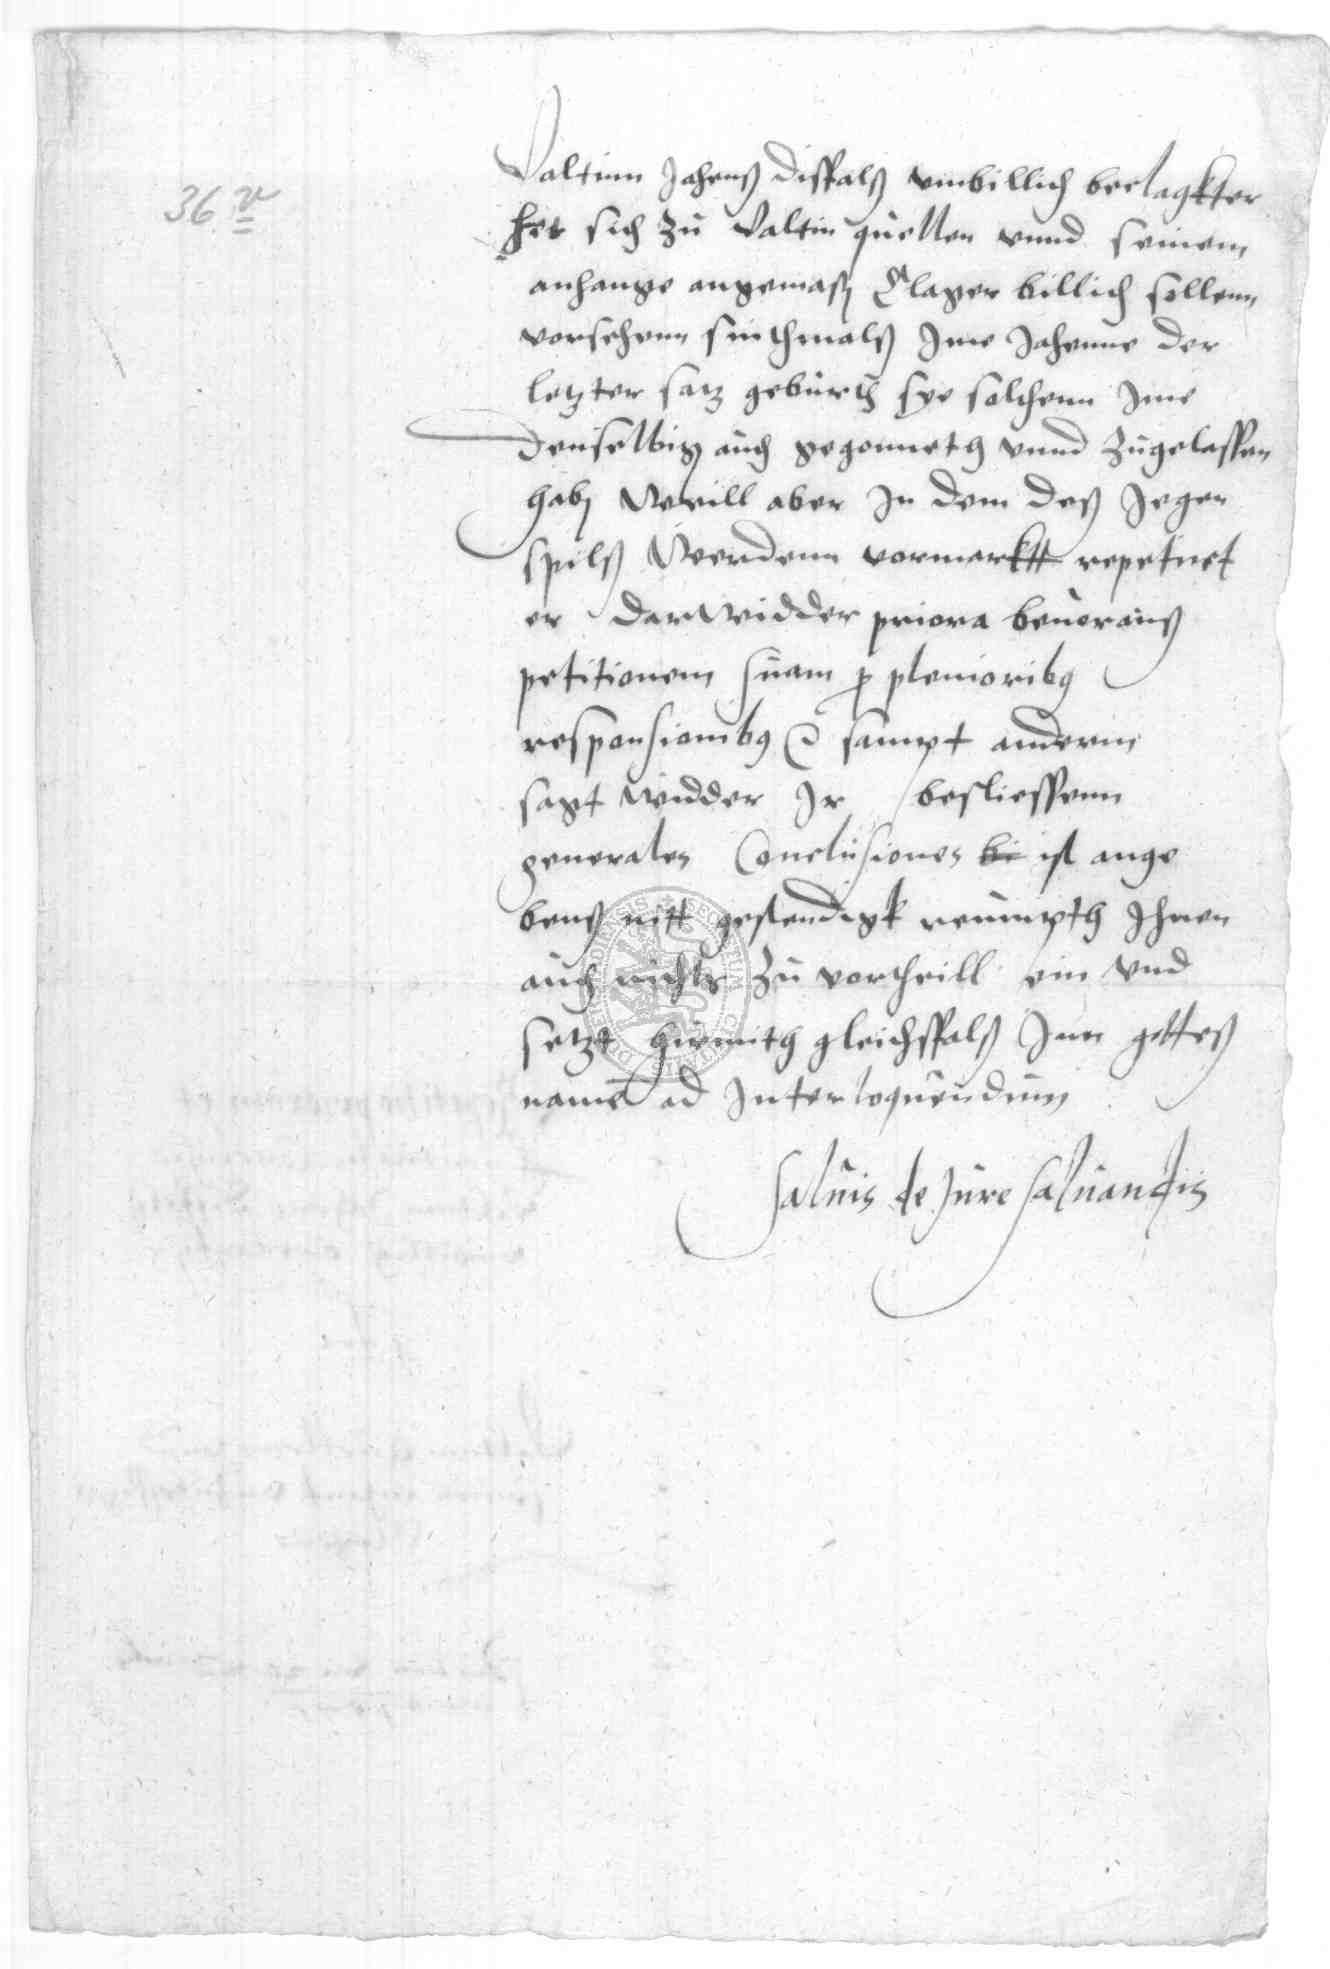 36 v
Valtinn Jahenß dissfalß vnbillich beclagkter
het sich zu Valtin quellen vnnd seinem
anhange angemaß Clager billich sollenn
vorsehenn sinthmalß Ime Jahenne der
letzter satz geburth sye solchenn Ime
denselbig auch gegonneth vnnd zugelassen
hab Weill aber In dem deß Jegen
spilß Werdenn vormarktt repetiret
er darWidder priora beuorauß
petitionem suam p plenioribg
responsionibg sampt anderm
sagt Widder Ir besliessenn
generales Conclusiones ist ange
benß nitt gestendigk reumpth Ihnen
auch nichts zu vortheill ein vnd
setzt hirmith gleichsfalß Inn gotteß
name ad Interloquendum
saluis de Jure saluandis